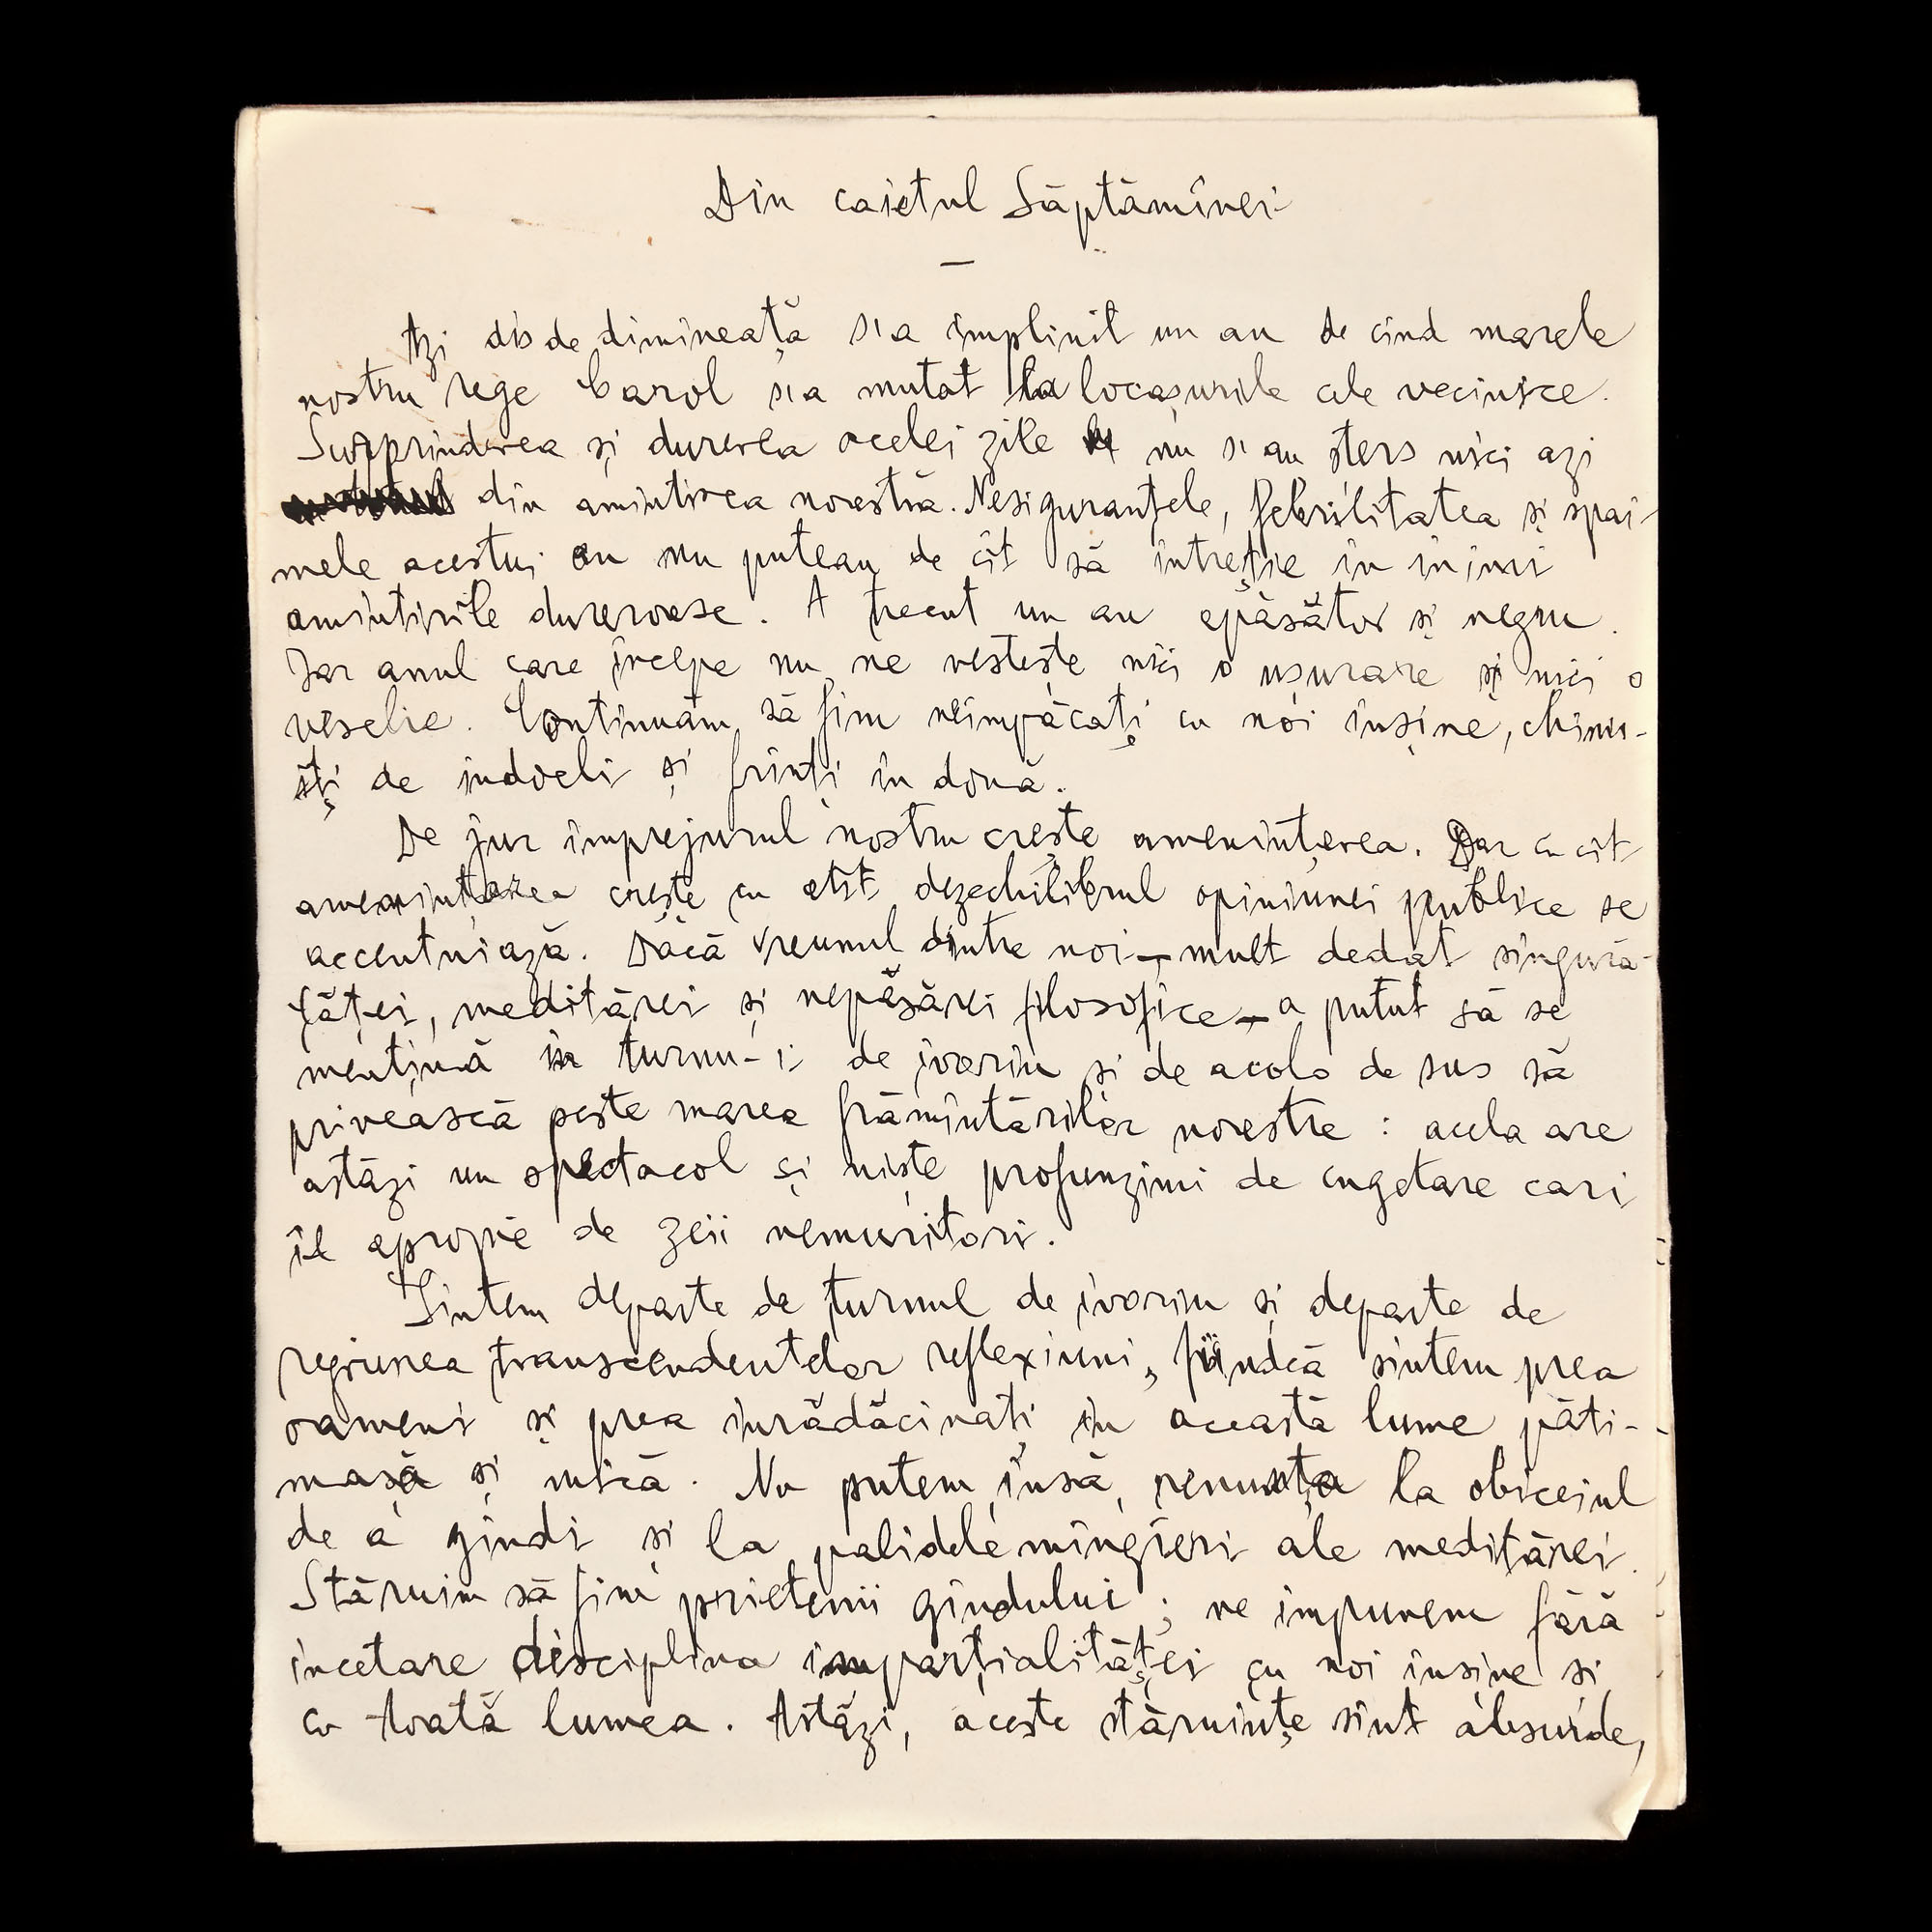 Din caietul Săptămînei
—
Azi dis de dimineață s'a împlinit un an de cînd marele
nostru rege Carol s'a mutat la locașurile cele vecinice.
Surprinderea și durerea acelei zile nu s'au șters nici azi
din amintirea noastră. Nesiguranțele, febrilitatea și spai-
mele acestui an nu puteau de cît să întreție în inimi
amintirile dureroase. A trecut un an apăsător și negru.
Iar anul care începe nu ne vestește nici o ușurare și nici o
veselie. Continuăm să fim neîmpăcați cu noi înșine, chinu-
iți de indoeli și frînți în două.
De jur împrejurul nostru crește amenințarea. Dar cu cît
amenințarea crește cu atît dezechilibrul opiniunei publice se
accentuiază. Dacă vreunul dintre noi — mult dedat singură-
tăței, meditărei și nepăsărei filosofice — a putut să se
mențină în turnu-i de ivoriu și de acolo de sus să
privească peste marea frămîntărilor noastre : acela are
astăzi un spectacol și niște profunzimi de cugetare cari
îl apropie de zeii nemuritori.
Sîntem departe de turnul de ivoriu și departe de
regiunea transcendentelor reflexiuni, fiindcă sîntem prea
oameni și prea înrădăcinați în această lume păti-
mașă și mică. Nu putem însă, renunța la obiceiul
de a gîndi și la palidele mîngîeri ale meditărei.
Stăruim să fim prietenii gîndului ; ne impunem fără
incetare disciplina imparțialităței cu noi înșine și
cu toată lumea. Astăzi, aceste stăruințe sînt absurde,